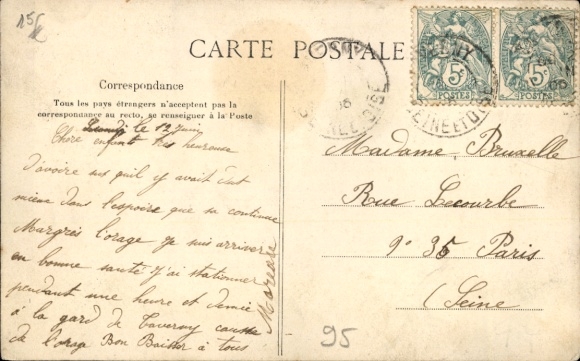 15f
CARTE POSTALE
Correspondance
Tous les pays étrangers n'acceptent pas la
correspondance au recto, se renseigner à la Poste
Lundi le 12 juin
Chere enfants tres heureuse
d'avoire sus quil y avait du
mieux dans l'espoire que sa continue
Margrès l'orage je suis arrivere
en bonne santé J'ai stationner
pendant une heure et demie
à la gard de Taverny cause
de l'orage Bon Baisser à tous
5c
POSTES
5c
POSTES
SEINE ET OISE
Madame Bruxelle
Rue Lecourbe
n° 35 Paris
(Seine
95